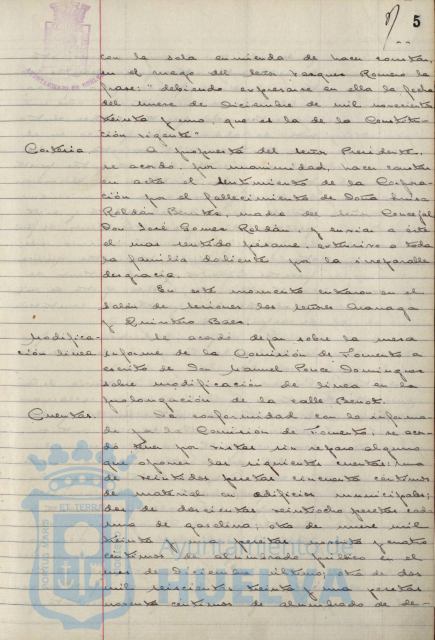 5
con la sola enmienda de hacer constar,
en el ruego del señor Vazquez Romero la
frase: "debiendo expresarse en ella la fecha
del nueve de Diciembre de mil novecientos
treinta y uno, que es la de la Constitu-
ción vigente"
Cortesia
A propuesta del señor Presidente,
se acordó, por unanimidad, hacer constar
en acta el sentimiento de la Corpora-
ción por el fallecimiento de Doña Luisa
Roldán Benitez, madre del señor Concejal
Don José Gomez Roldán, y enviar a éste
el mas sentido pésame, extensivo a toda
la familia doliente por la irreparable
desgracia.
En este momento entraron en el
salón de sesiones los señores
y Quintero Baez.
Modifica-
ción linea
Se acordó dejar sobre la mesa
informe de la Comisión de Fomento a
escrito de Don Manuel Ponce Dominguez
sobre modificación de linea en la
prolongación de la calle Benot.
Cuentas.
De conformidad con lo informa-
do por la Comisión de Fomento, se acor-
dó tener por vistas sin reparo alguno
que oponer las siguientes cuentas: una
de veintidos pesetas cincuenta centimos
de material en edificios municipales;
dos de doscientas veintiocho pesetas cada
una de gasolina; otra de nueve mil
treinta y pesetas y cuatro
centimos de alumbrado público en el
mes de Diciembre ultimo; otra de dos
mil seiscientas treinta y una pesetas
noventa centimos de alumbrado de de-
Ayuntamiento de
HUELVA